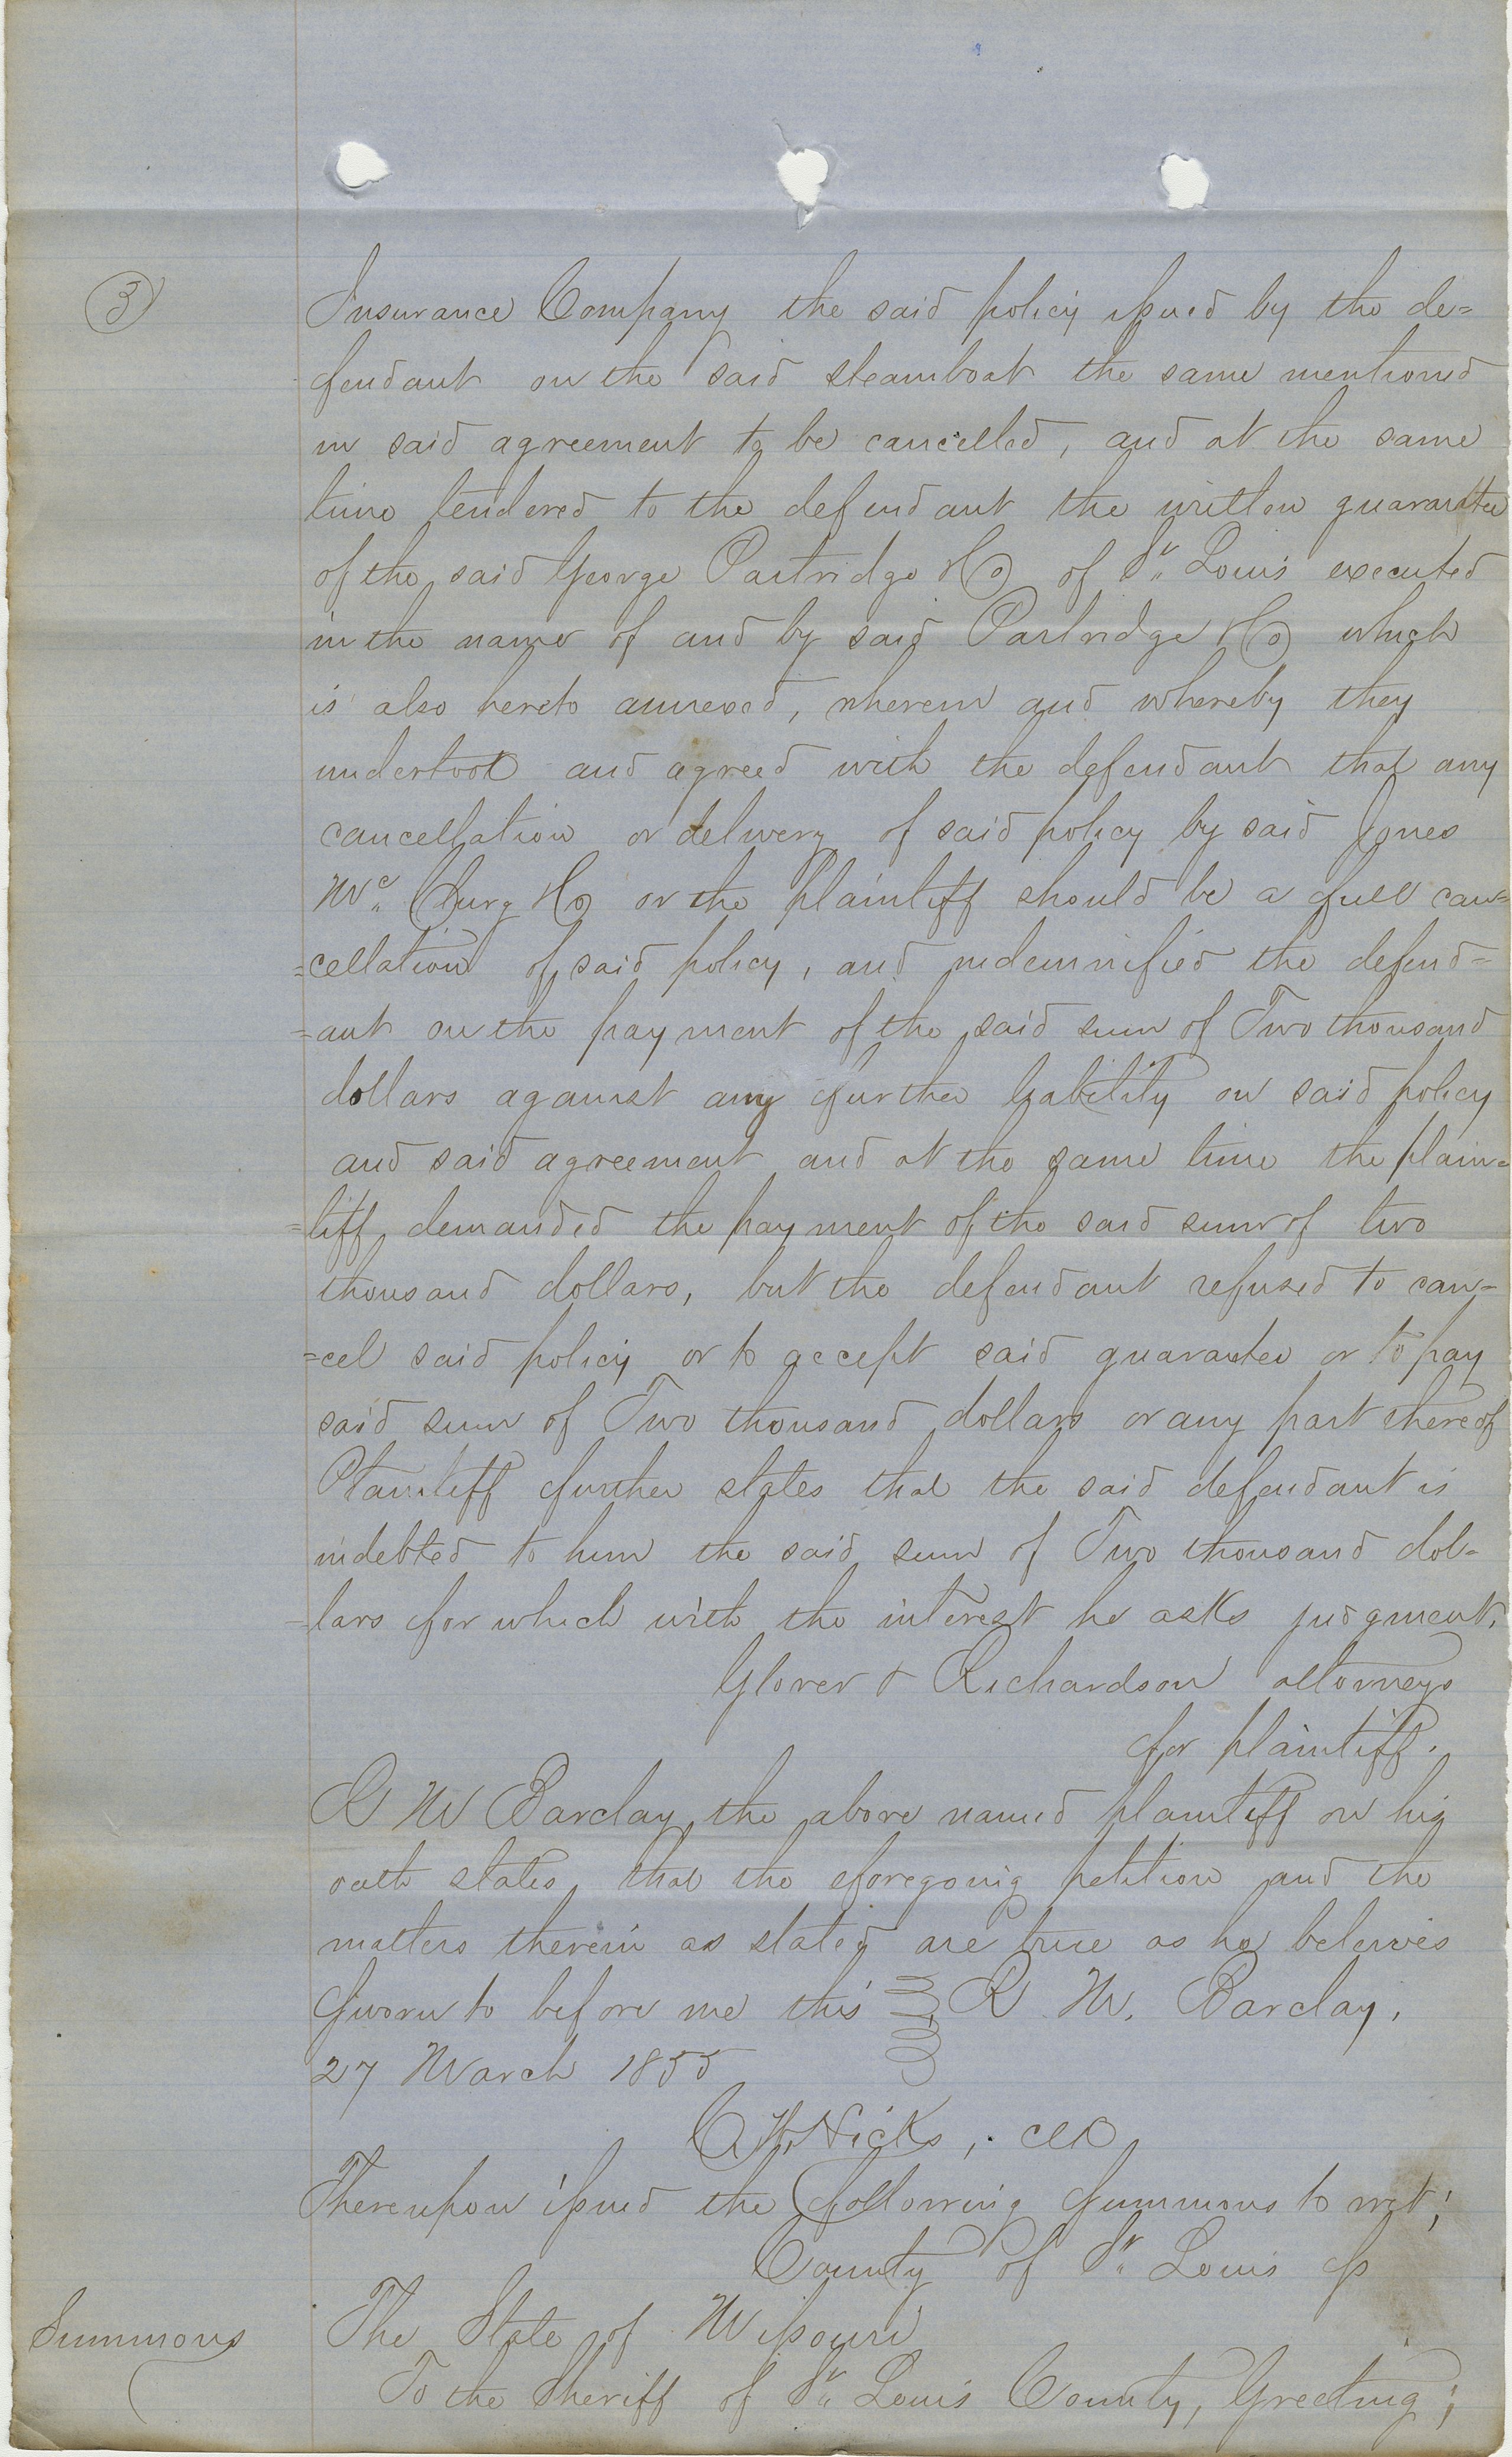 3
Insurance Company the said policy issued by the de=
fendant on the said steamboat the same mentioned
in said agreement to be cancelled, and at the same
time tendered to the defendant the written guarantee
of the said George Partridge &Co of St. Louis executed
in the name of and by said Partridge &Co which
is also hereto annexed, wherein and whereby they
undertook and agreed with the defendant that any
cancellation or delivery of said policy by said Jones
Mc. Clurg &Co or the plaintiff should be a full can=
=cellation of said policy, and indemnified the defend=
=ant on the payment of the said sum of Two thousand
dollars against any further liability on said policy
and said agreement and at the same time the plain=
=tiff demanded the payment of the said sum of two
thousand dollars, but the defendant refused to can=
=cel said policy or to accept said guarantee or to pay
said sum of Two thousand dollars or any part thereof
Plaintiff further states that the said defendant is
indebted to him the said sum of Two thousand dol=
=lars for which with the interest he asks judgment.
Glover & Richardson attorneys
for plaintiff.
R M Barclay the above named plaintiff on his
oath states that the foregoing petition and the
matters therein as stated are true as he beleives
Sworn to before me this R M. Barclay,
27 March 1855
C. W. Hicks, clk
Thereupon issued the following Summons to wit;
County of St. Louis ss
Summons The State of Missouri
To the Sheriff of St. Louis County, Greeting;